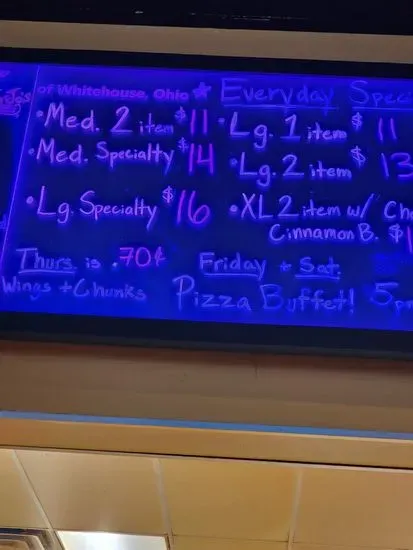 of Whitehouse, Ohio Everyday
• Med. 2 item $11 • Lg. 1 item $11
• Med. Specialty $14 • Lg. 2 item $13
• Lg. Specialty $16 • XL 2 item w/
Cinnamon B. $1
Thurs. is .70¢ Friday + Sat.
Wings + Chunks Pizza Buffet! 5p